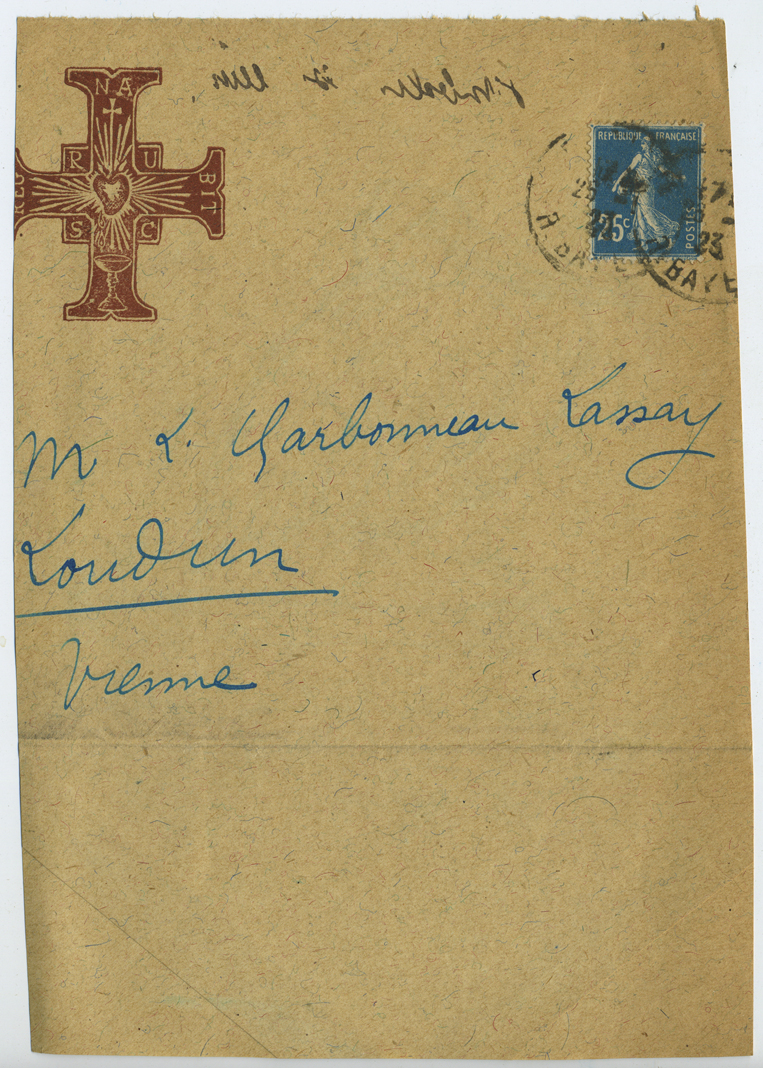 NA
R U
REG BIT
S C
REPUBLIQUE FRANÇAISE
25c
POSTES
25
23
R. BAYE
BAYE
M L. Charbonneau Lassay
Loudun
Vienne